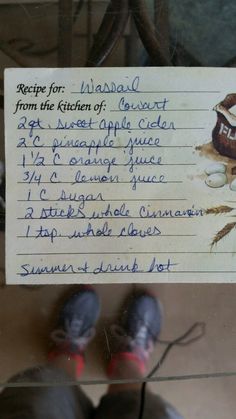 Recipe for: Wassail
from the kitchen of: Cowart
2 qt. sweet apple cider
2 C pineapple juice
1 1/2 C orange juice
3/4 C lemon juice
1 C sugar
2 sticks whole cinnamon
1 tsp. whole cloves
Simmer & drink hot
FL